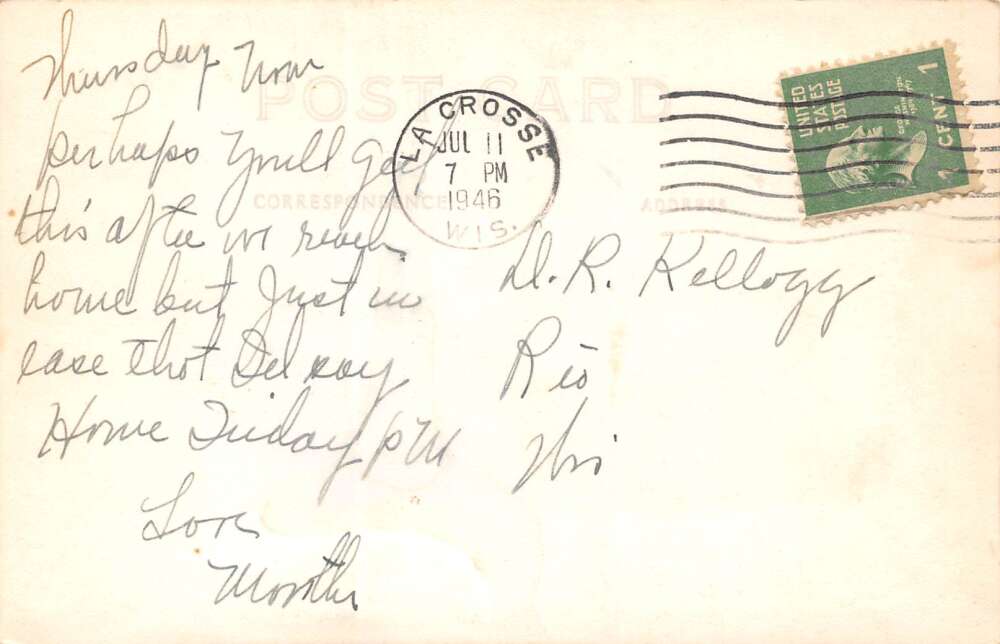 Thursday Noon
perhaps You'll get
this after we reach
home but Just in
case that I'd say
Home Friday PM
Love
Mother
POST CARD
CORRESPONDENCE
ADDRESS
LA CROSSE
JUL 11
7 PM
1946
WIS.
UNITED
STATES
POSTAGE
1 CENT 1
D. R. Kellogg
Rio
Wis